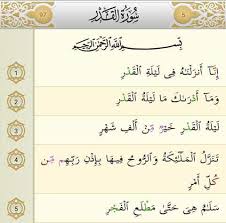 97 سُورَةُ القَدْرِ 5
بِسْمِ ٱللَّهِ ٱلرَّحْمَٰنِ ٱلرَّحِيمِ
1 إِنَّآ أَنزَلْنَٰهُ فِى لَيْلَةِ ٱلْقَدْرِ
2 وَمَآ أَدْرَىٰكَ مَا لَيْلَةُ ٱلْقَدْرِ
3 لَيْلَةُ ٱلْقَدْرِ خَيْرٌ مِّنْ أَلْفِ شَهْرٍ
4 تَنَزَّلُ ٱلْمَلَٰٓئِكَةُ وَٱلرُّوحُ فِيهَا بِإِذْنِ رَبِّهِم مِّن
كُلِّ أَمْرٍ
5 سَلَٰمٌ هِىَ حَتَّىٰ مَطْلَعِ ٱلْفَجْرِ